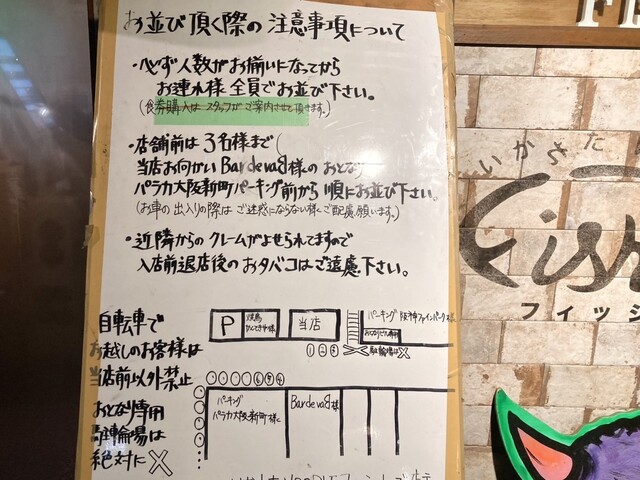 お並び頂く際の注意事項について
・必ず人数がお揃いになってから
お連れ様全員でお並び下さい。
(食券購入は スタッフが ご案内させて頂きます。)
・店舗前は3名様まで(
当店お向かい Bardeva様の おとなり
パラカ大阪新町パーキング前から 順にお並び下さい。
(お車の出入りの際は ご迷惑にならない様に ご配慮願います。)
・近隣からの クレームがよせられてますので
入店前退店後のおタバコはご遠慮下さい。
自転車で
お越しのお客様は
当店前以外禁止
おとなり専用
駐輪場は
絶対に×
P
当店
パーキング 阪神ファインパーク様
①②③
駐輪場は×
⑥⑤④
パーキング
パラカ大阪新町様
Bardeva様
いかさた
Fis
フィッシ